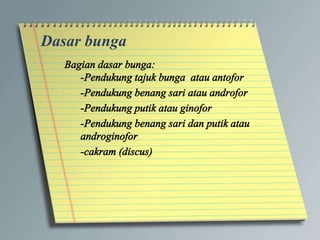 Dasar bunga
Bagian dasar bunga:
-Pendukung tajuk bunga  atau antofor
-Pendukung benang sari atau androfor
-Pendukung putik atau ginofor
-Pendukung benang sari dan putik atau
androginofor
-cakram (discus)